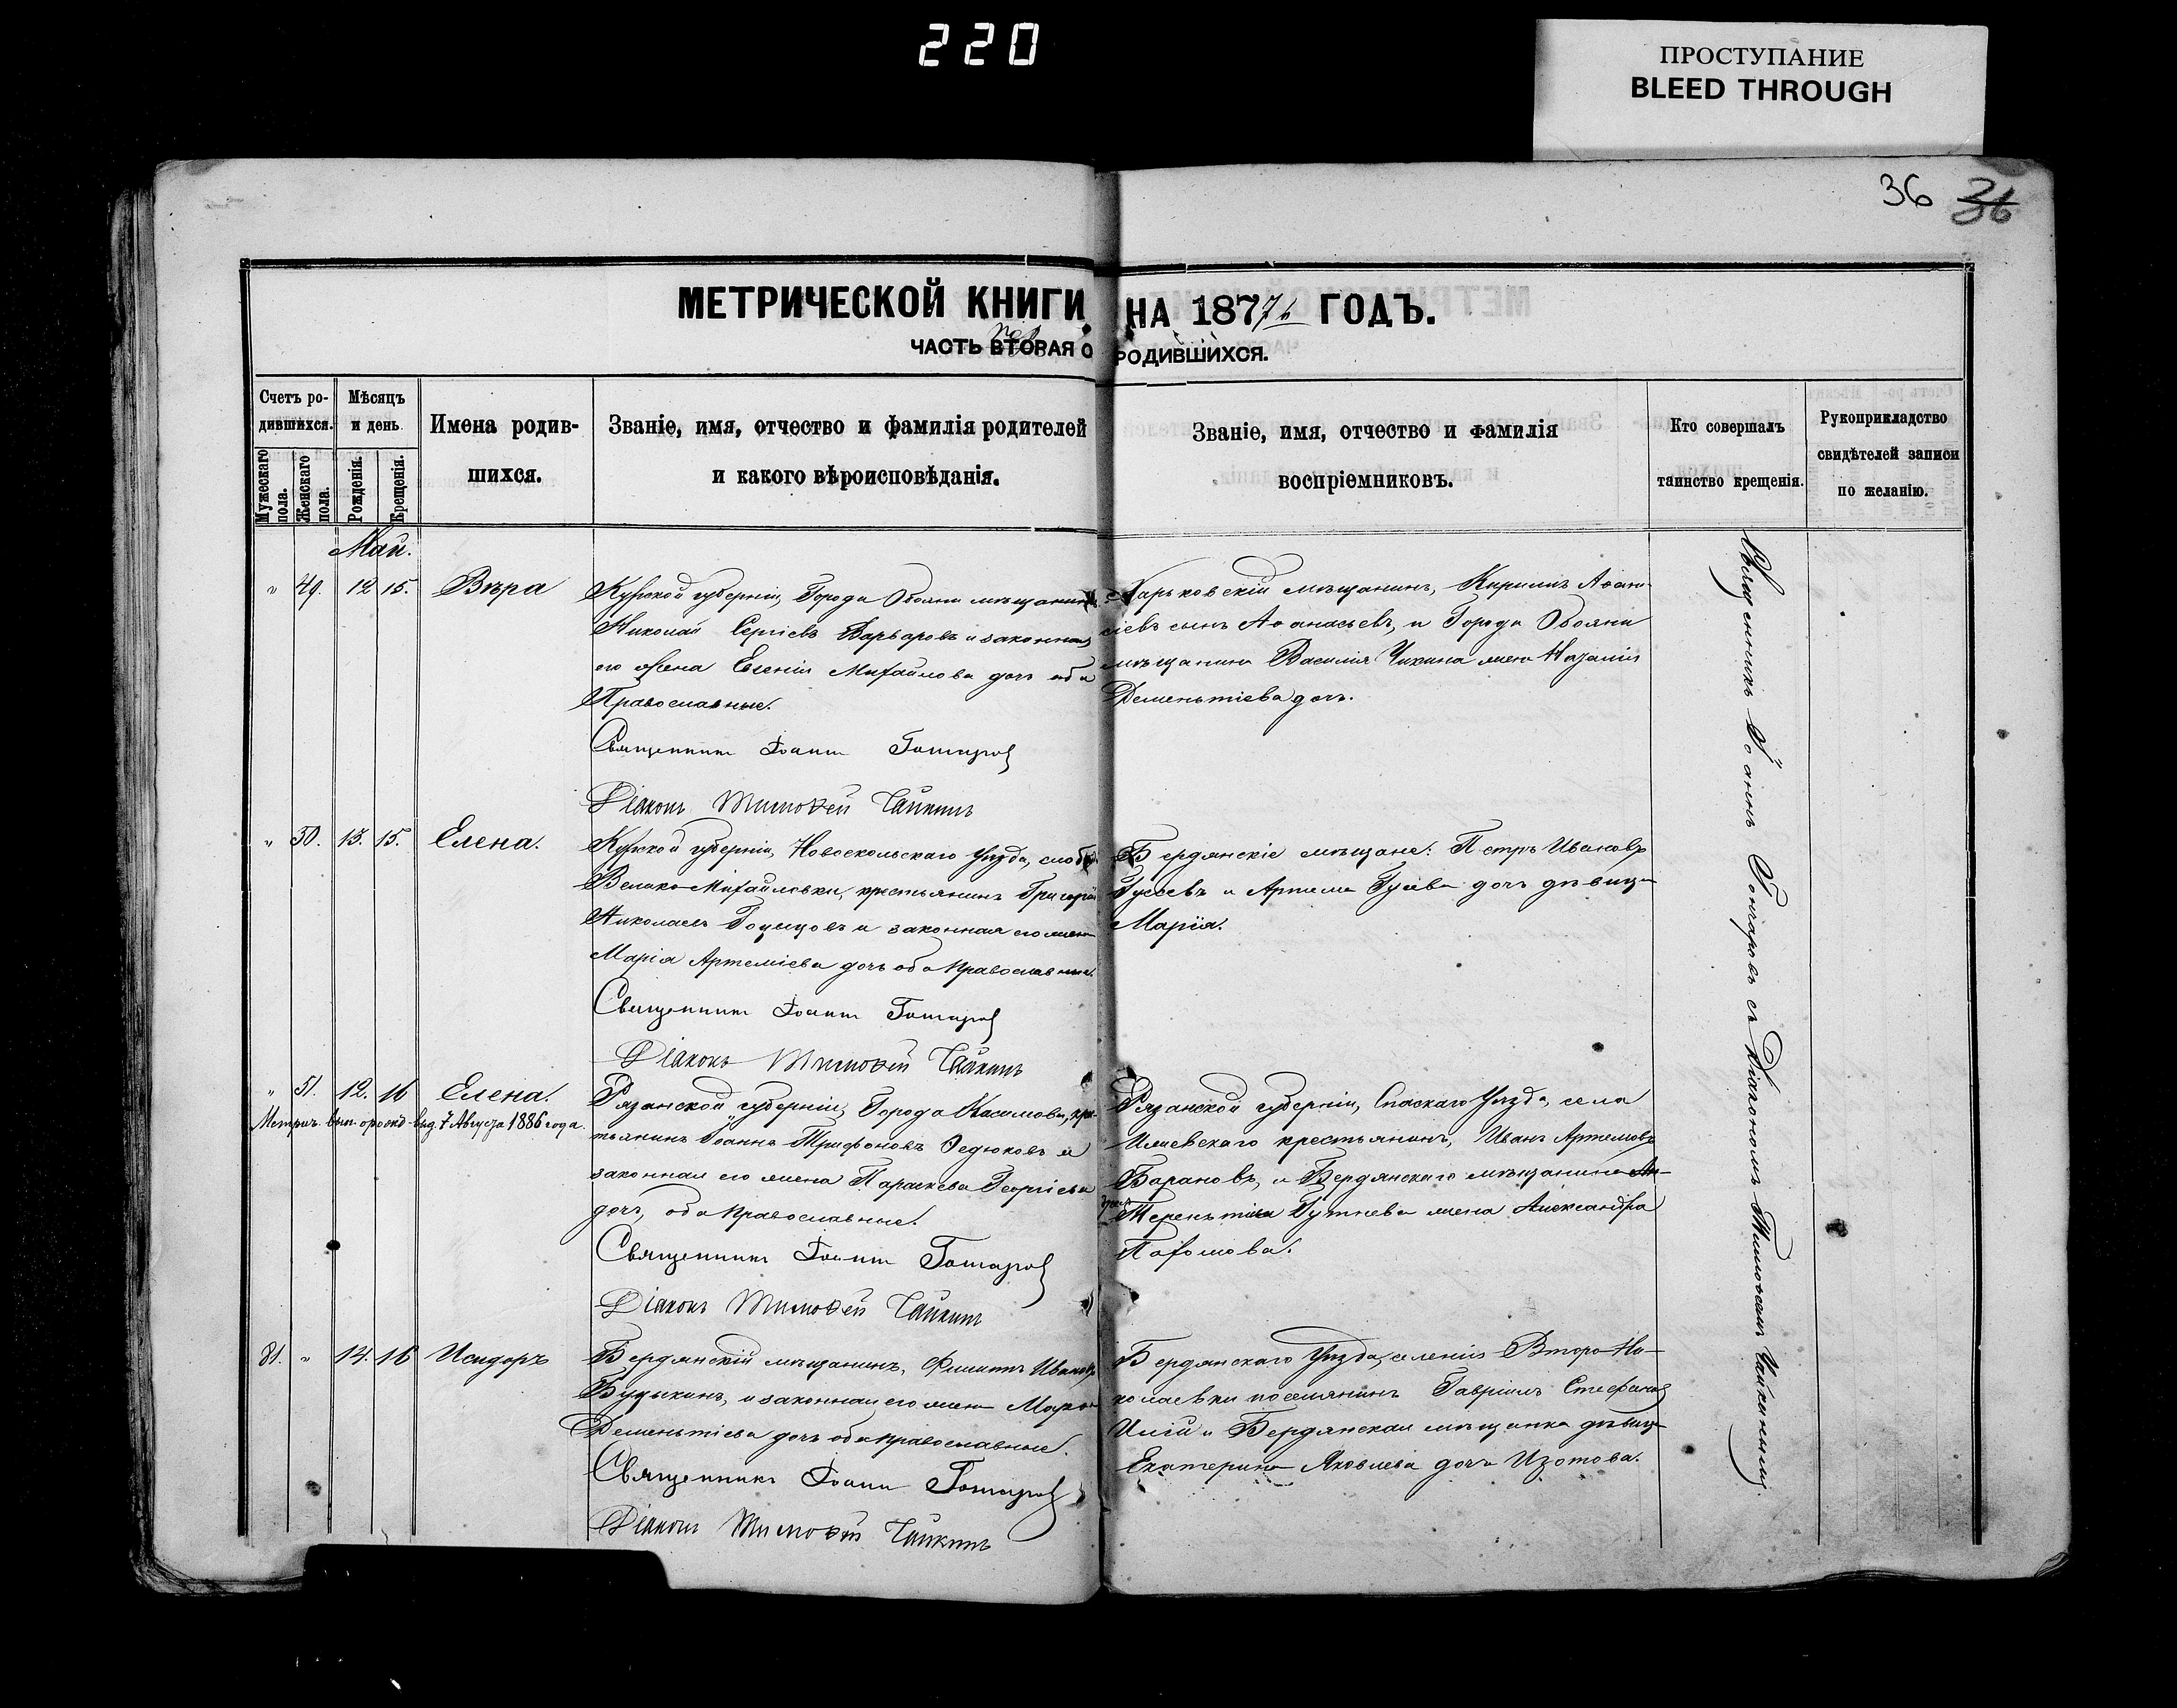 220
ПРОСТУПАНИЕ
BLEED THROUGH
36 36
МЕТРИЧЕСКОЙ КНИГИ НА 1877 ГОДЪ.
ЧАСТЬ ВТОРАЯ О РОДИВШИХСЯ.
Счетъ ро-
дившихся.
Мужескаго пола.
Женскаго пола.
Мѣсяцъ
и день
Рожденія.
Крещенія.
Имена родив-
шихся.
Званіе, имя, отчество и фамилія родителей
и какого вѣроисповѣданія.
Званіе, имя, отчество и фамилія
воспріемниковъ.
Кто совершалъ
таинство крещенія.
Рукоприкладство
свидѣтелей записи
по желанію.
Май.
" 49. 12 15. Вѣра
Курской губерніи, Города Обояни мѣщанинъ
Николай Сергіевъ Варваровъ и законная
его жена Евгенія Михайлова дочь оба
Православные.
Священникъ Іоаннъ Гончаровъ
Діаконъ Тимоѳей Чайкинъ
Харьковскій мѣщанинъ, Кириллъ Аѳана-
сіевъ сынъ Аѳанасьевъ, и Города Обояни
мѣщанина Василія Чикина жена
Дементіева дочь.
" 50. 13. 15. Елена.
Курской губерніи, Новоскольскаго Уѣзда, слоб.
Велико-Михайловки, крестьянинъ Григорій
Николаевъ и законная его жена
Марія Артеміева дочь оба Православные.
Священникъ Іоаннъ Гончаровъ
Діаконъ Тимоѳей Чайкинъ
Бердянскіе мѣщане: Петръ Ивановъ
Гусевъ и Артема Гусева дочь дѣвица
Марія.
" 51. 12. 16 Елена.
Метрич. вып. о рожд. выд. 7 Августа 1886 года.
Рязанской губерніи, Города Касимова, крес-
тьянинъ Іоаннъ Трифоновъ Ѳедюковъ и
законная его жена Параскева Георгіева
дочь, оба Православные.
Священникъ Іоаннъ Гончаровъ
Діаконъ Тимоѳей Чайкинъ
Рязанской губерніи, Спаскаго Уѣзда, села
крестьянинъ, Иванъ Артемовъ
Барановъ, и Бердянскаго мѣщанина
Терентіва жена Александра
Пахомова.
81. " 14. 16 Исидоръ
Бердянскій мѣщанинъ, Филиппъ Ивановъ
и законная его жена
Дементіева дочь оба православные.
Священникъ Іоаннъ Гончаровъ
Діаконъ Тимоѳей Чайкинъ
Бердянскаго Уѣзда, селенія Второ-Ни-
колаевки поселянинъ Гавріилъ Стефановъ
и Бердянская мѣщанка дѣвица
Екатерина Яковлева дочь Изотова.
Священникъ Іоаннъ Гончаровъ съ Діакономъ Тимоѳеемъ Чайкинымъ